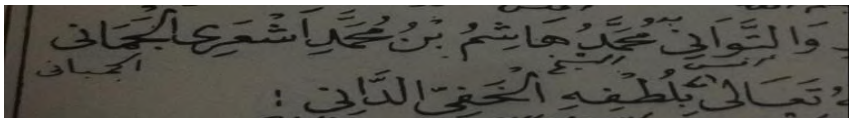 وَالتَّوَانِي مُحَمَّدُ هَاشِمُ بْنُ مُحَمَّدِ اَشْعَرِي الْجُمَانِي
تَعَالَى بِلُطْفِهِ الْخَفِيِّ الدَّانِي :